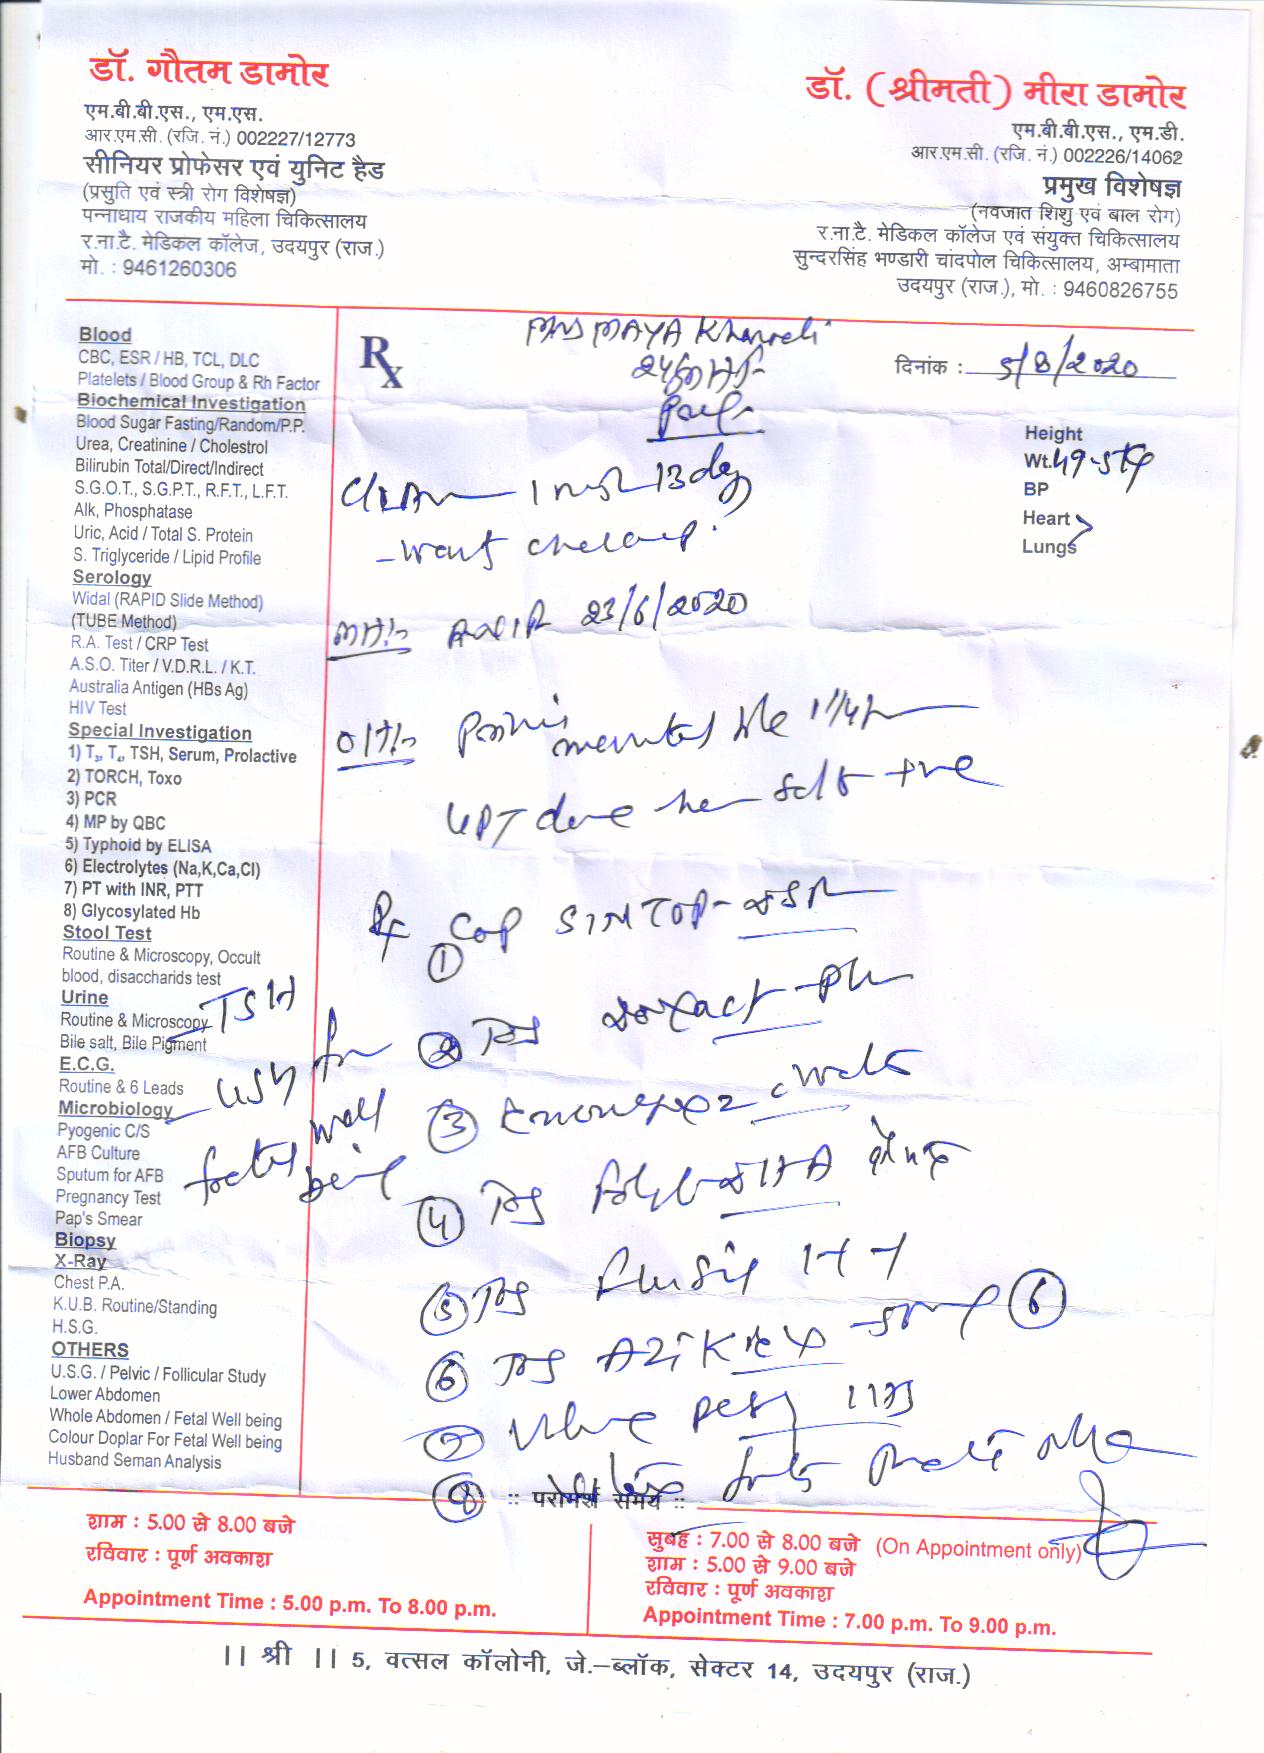 डॉ. गौतम डामोर
एम.बी.बी.एस., एम.एस.
आर.एम.सी. (रजि. नं.) 002227/12773
सीनियर प्रोफेसर एवं युनिट हैड
(प्रसुति एवं स्त्री रोग विशेषज्ञ)
पन्नाधाय राजकीय महिला चिकित्सालय
र.ना.टै. मेडिकल कॉलेज, उदयपुर (राज.)
मो. : 9461260306
डॉ. (श्रीमती) मीरा डामोर
एम.बी.बी.एस., एम.डी.
आर.एम.सी. (रजि. नं.) 002226/14062
प्रमुख विशेषज्ञ
(नवजात शिशु एवं बाल रोग)
र.ना.टै. मेडिकल कॉलेज एवं संयुक्त चिकित्सालय
सुन्दरसिंह भण्डारी चांदपोल चिकित्सालय, अम्बामाता
उदयपुर (राज.), मो. : 9460826755
Blood
CBC, ESR / HB, TCL, DLC
Platelets / Blood Group & Rh Factor
Biochemical Investigation
Blood Sugar Fasting/Random/P.P.
Urea, Creatinine / Cholestrol
Bilirubin Total/Direct/Indirect
S.G.O.T., S.G.P.T., R.F.T., L.F.T.
Alk, Phosphatase
Uric, Acid / Total S. Protein
S. Triglyceride / Lipid Profile
Serology
Widal (RAPID Slide Method)
(TUBE Method)
R.A. Test / CRP Test
A.S.O. Titer / V.D.R.L. / K.T.
Australia Antigen (HBs Ag)
HIV Test
Special Investigation
1) T3, T4, TSH, Serum, Prolactive
2) TORCH, Toxo
3) PCR
4) MP by QBC
5) Typhoid by ELISA
6) Electrolytes (Na,K,Ca,Cl)
7) PT with INR, PTT
8) Glycosylated Hb
Stool Test
Routine & Microscopy, Occult
blood, disaccharids test
Urine
Routine & Microscopy
Bile salt, Bile Pigment
E.C.G.
Routine & 6 Leads
Microbiology
Pyogenic C/S
AFB Culture
Sputum for AFB
Pregnancy Test
Pap's Smear
Biopsy
X-Ray
Chest P.A.
K.U.B. Routine/Standing
H.S.G.
OTHERS
U.S.G. / Pelvic / Follicular Study
Lower Abdomen
Whole Abdomen / Fetal Well being
Colour Doplar For Fetal Well being
Husband Seman Analysis
TSH
USG for
foetal well
being
Rx
Mrs MAYA
दिनांक : 5/8/2020
Height
Wt. 49.5 kg
BP
Heart
Lungs
1 13 day
- want checkup
MH:- 23/6/2020
OH:-
UPT done her self +ve
Rx ① Cap SIMTOP-DSR
②
③
④
⑤ 1+1
⑥
⑦
⑧
:: परामर्श समय ::
शाम : 5.00 से 8.00 बजे
रविवार : पूर्ण अवकाश
Appointment Time : 5.00 p.m. To 8.00 p.m.
सुबह : 7.00 से 8.00 बजे (On Appointment only)
शाम : 5.00 से 9.00 बजे
रविवार : पूर्ण अवकाश
Appointment Time : 7.00 p.m. To 9.00 p.m.
|| श्री || 5, वत्सल कॉलोनी, जे.-ब्लॉक, सेक्टर 14, उदयपुर (राज.)